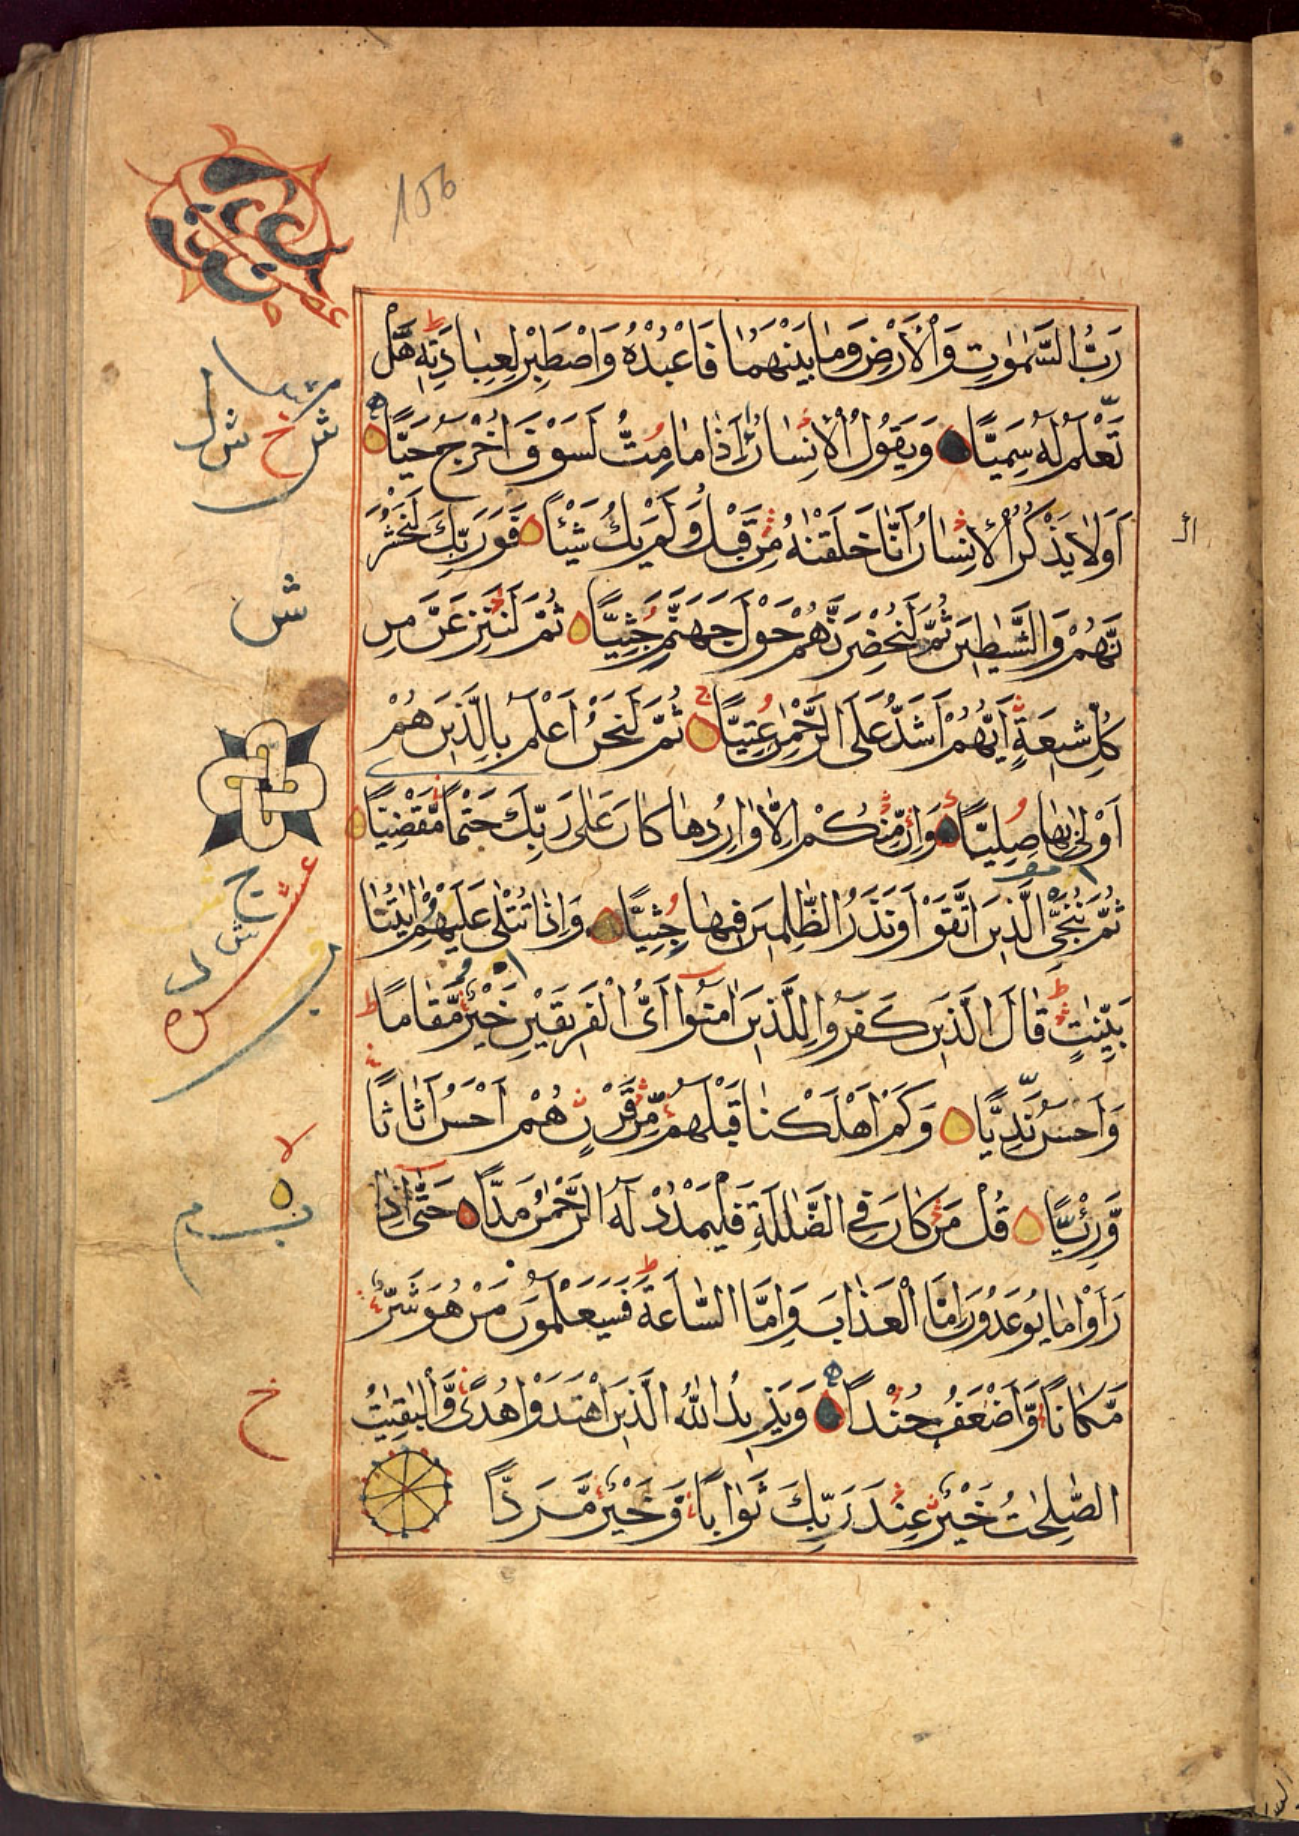 156
رَبُّ السَّمٰوٰتِ وَالْاَرْضِ وَمَا بَيْنَهُمَا فَاعْبُدْهُ وَاصْطَبِرْ لِعِبَادَتِهٖ هَلْ
تَعْلَمُ لَهٗ سَمِيًّا وَيَقُولُ الْاِنْسَانُ ءَاِذَا مَا مِتُّ لَسَوْفَ اُخْرَجُ حَيًّا
اَوَلَا يَذْكُرُ الْاِنْسَانُ اَنَّا خَلَقْنٰهُ مِنْ قَبْلُ وَلَمْ يَكُ شَيْئًا فَوَرَبِّكَ لَنَحْشُرَ
نَّهُمْ وَالشَّيٰطِينَ ثُمَّ لَنُحْضِرَنَّهُمْ حَوْلَ جَهَنَّمَ جِثِيًّا ثُمَّ لَنَنْزِعَنَّ مِنْ
كُلِّ شِيعَةٍ اَيُّهُمْ اَشَدُّ عَلَى الرَّحْمٰنِ عِتِيًّا ثُمَّ لَنَحْنُ اَعْلَمُ بِالَّذِينَ هُمْ
اَوْلٰى بِهَا صِلِيًّا وَاِنْ مِّنْكُمْ اِلَّا وَارِدُهَا كَانَ عَلٰى رَبِّكَ حَتْمًا مَّقْضِيًّا
ثُمَّ نُنَجِّى الَّذِينَ اتَّقَوْا وَنَذَرُ الظّٰلِمِينَ فِيهَا جِثِيًّا وَاِذَا تُتْلٰى عَلَيْهِمْ اٰيٰتُنَا
بَيِّنٰتٍ قَالَ الَّذِينَ كَفَرُوا لِلَّذِينَ اٰمَنُوا اَىُّ الْفَرِيقَيْنِ خَيْرٌ مَّقَامًا
وَاَحْسَنُ نَدِيًّا وَكَمْ اَهْلَكْنَا قَبْلَهُمْ مِّنْ قَرْنٍ هُمْ اَحْسَنُ اَثَاثًا
وَّرِءْيًا قُلْ مَنْ كَانَ فِي الضَّلٰلَةِ فَلْيَمْدُدْ لَهُ الرَّحْمٰنُ مَدًّا حَتّٰى اِذَا
رَاَوْا مَا يُوعَدُونَ اِمَّا الْعَذَابَ وَاِمَّا السَّاعَةَ فَسَيَعْلَمُونَ مَنْ هُوَ شَرٌّ
مَّكَانًا وَّاَضْعَفُ جُنْدًا وَيَزِيدُ اللّٰهُ الَّذِينَ اهْتَدَوْا هُدًى وَّالْبٰقِيٰتُ
الصّٰلِحٰتُ خَيْرٌ عِنْدَ رَبِّكَ ثَوَابًا وَّخَيْرٌ مَّرَدًّا